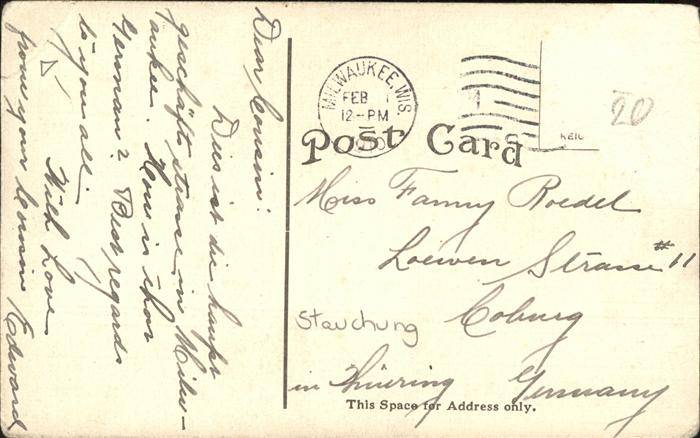 Dear Cousin:
Dies ist die haupt
geschäfts strasse in Milw-
aukee. How is thor
German? Best regards
to you all.
With Love
from your Cousin Edward
MILWAUKEE, WIS.
FEB 1
12-PM
20
Post Card
Miss Fanny Roedel
Loewen Strasse #11
Stauchung
Coburg
in Thüring Germany
This Space for Address only.